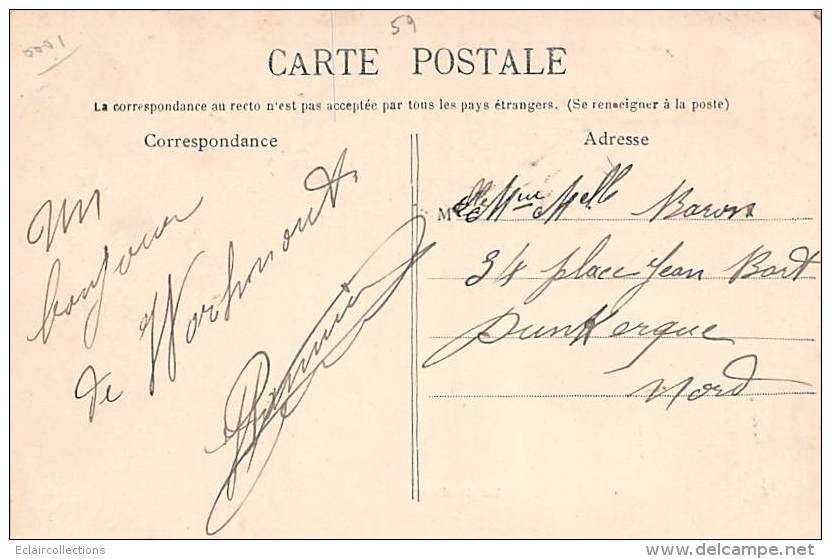 59
CARTE POSTALE
La correspondance au recto n'est pas acceptée par tous les pays étrangers. (Se renseigner à la poste)
Correspondance
Adresse
Un
bonjour
de Wormhout
M Mme Melle Baron
34 place Jean Bart
Dunkerque
Nord
Eclaircollections
www.delcampe.net